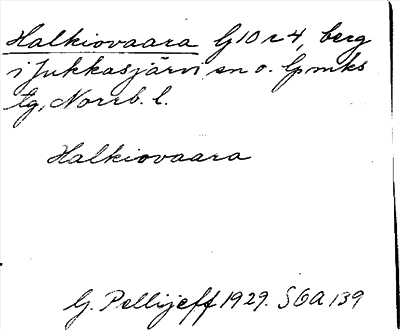 Halkiovaara G10r4, berg
i Jukkasjärvi sn o. lpmks
tg, Norrb. l.
Halkiovaara
G. Pellijeff 1929. SOA 139